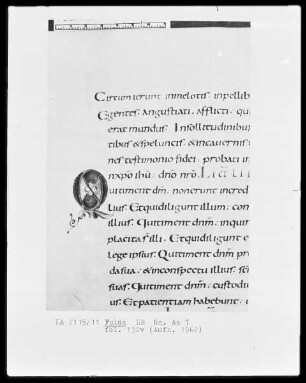 Circumierunt inmelotis inpellib
Egentes· angustiati· afflicti· qui
erat mundus· Insollitudinibu
tibus & speluncis· & incauernis
nes testimonio fidei· probati in
nxpo ihu· dno nro· Lib
Quitiment dnm· non erunt incred
lius· Et qui diligunt illum· con
illius· Quitiment dnm· inquir
placita s illi· Et qui diligunt e
lege ipsius· Quitiment dnm· pr
da sua· & inconspectu illius· se
suas· Quitiment dnm· custodiu
us· Et patientiam habebunt· u
LA 2115/11 Fulda LB Hs. Aa 7
fol. 132v (Aufn. 1962)